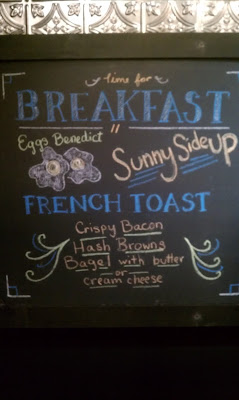 time for
BREAKFAST
Eggs Benedict
Sunny Side Up
FRENCH TOAST
Crispy Bacon
Hash Browns
Bagel with butter
or
cream cheese